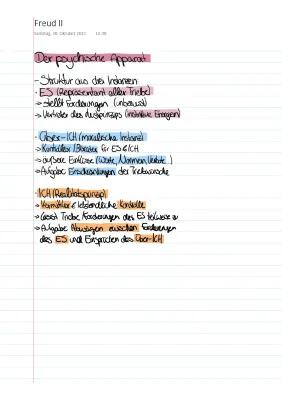 Freud II
Samstag, 30. Oktober 2021
Der psychische Apparat
- Struktur aus drei Instanzen
- ES (Repräsentant aller Triebe)
→ stellt Forderungen (unbewusst)
→ Vertreter des Lustprinzips (instinktive Energien)
Über-ICH (moralische Instanz)
→ Kontrolleur/Berater für ES & ICH
→ äußere Einflüsse (Werte, Normen, Verbote)
→ Aufgabe: Einschränkungen der Triebwünsche
ICH (Realitätsprinzip)
→ Vermittler & letztendliche Kontrolle
→ lässt Triebe Forderungen des ES teilweise zu
→ Aufgabe: Abwägen zwischen Forderungen
des ES und Einsprüchen des Über-ICH